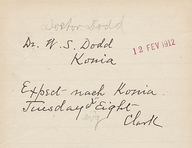 Doctor Dodd
Dr. W. S. Dodd
Konia
12 FEV 1912
Expect nach Konia.
Tuesday Eight
Clark